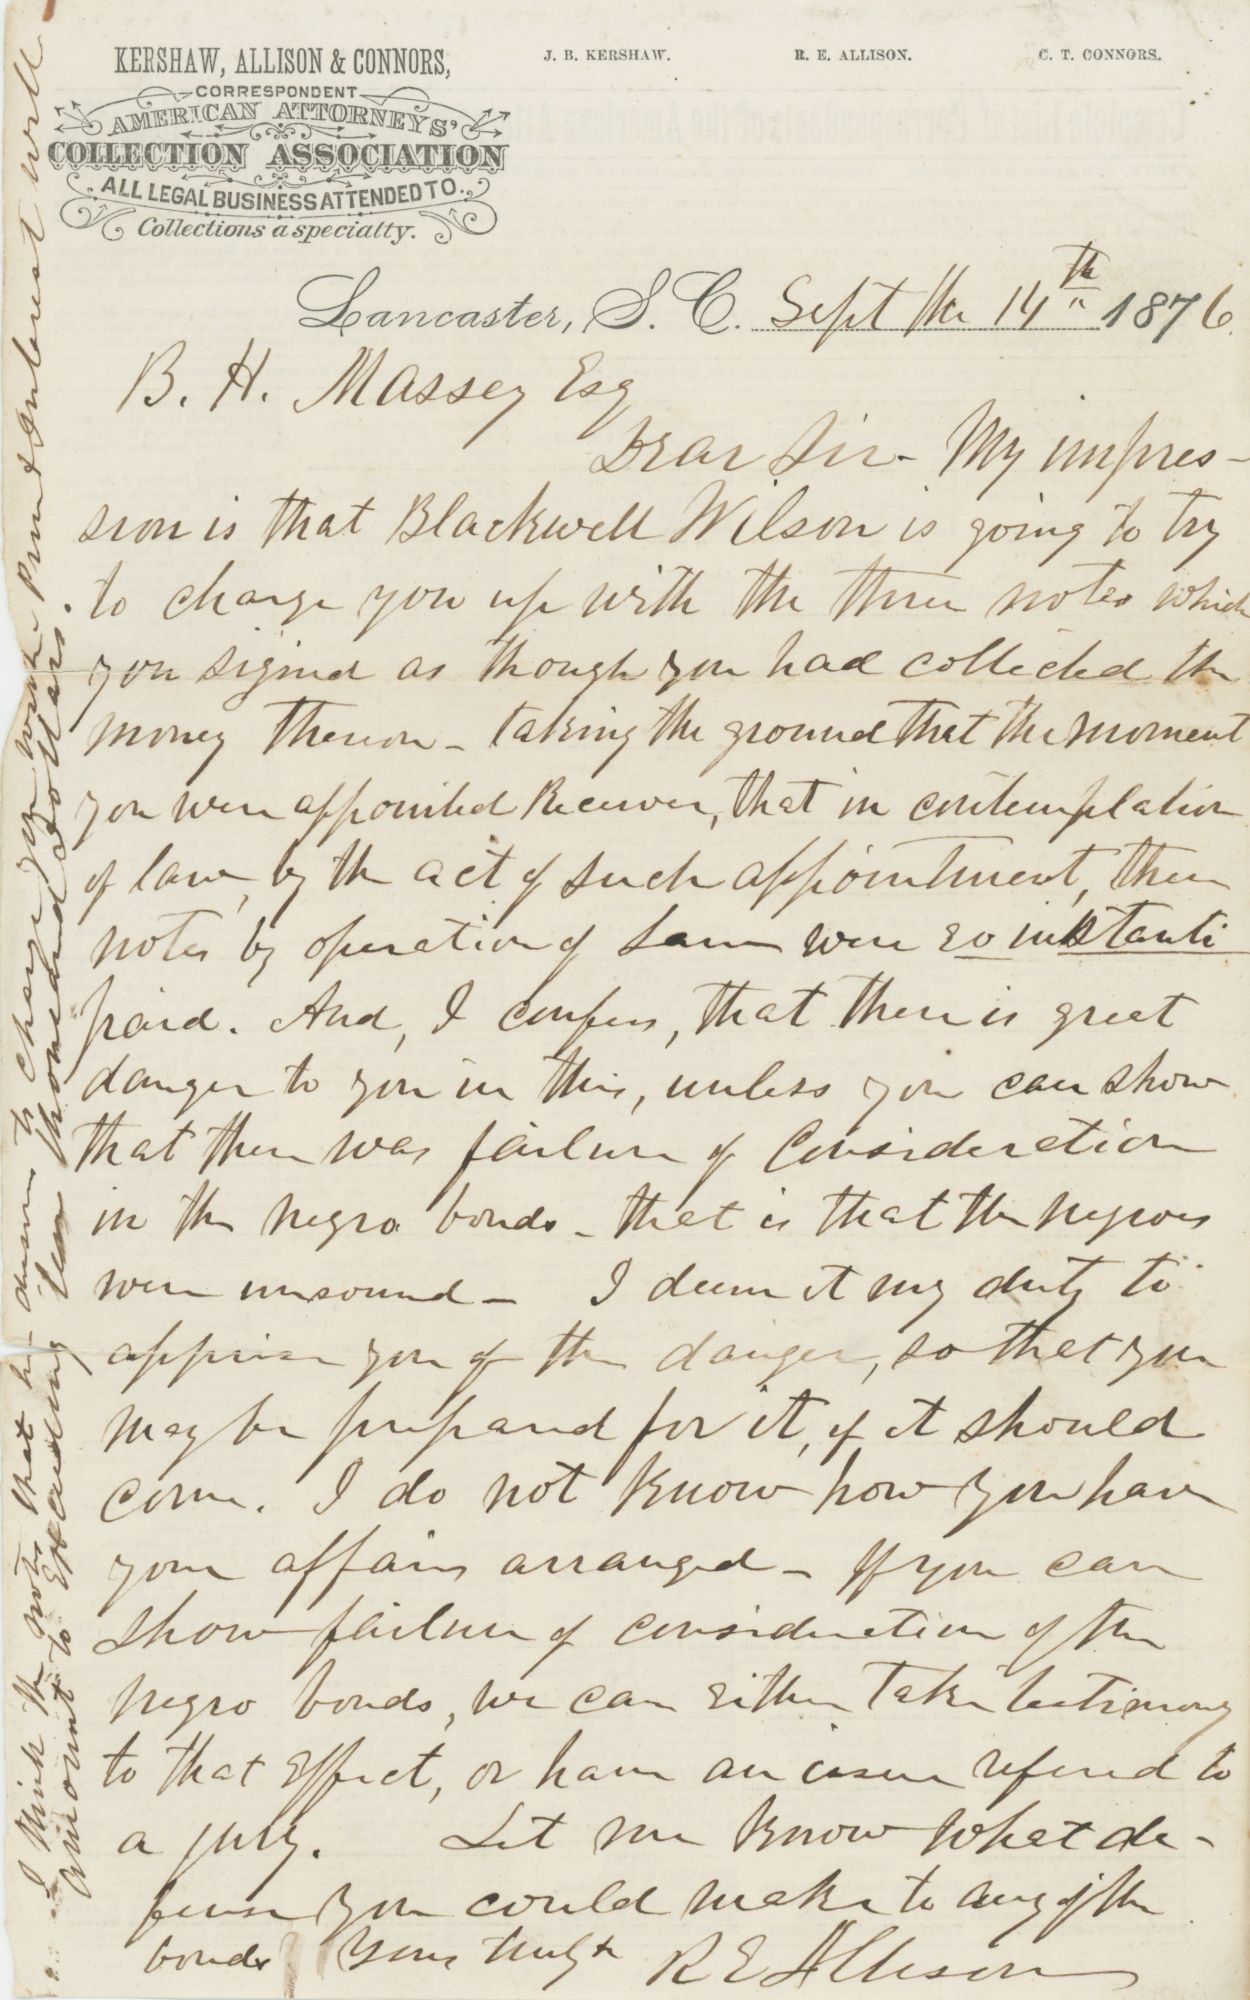 KERSHAW, ALLISON & CONNORS,
J. B. KERSHAW.
R. E. ALLISON.
C. T. CONNORS.
CORRESPONDENT
AMERICAN ATTORNEYS'
COLLECTION ASSOCIATION
ALL LEGAL BUSINESS ATTENDED TO.
Collections a specialty.
Lancaster, S. C. Sept the 14th 1876
B. H. Massey Esq
Dear Sir - My impres-
sion is that Blackwell Wilson is going to try
to charge you up with the three notes which
you signed as though you had collected the
money thereon - taking the ground that the moment
you were appointed Receiver, that in contemplation
of law, by the act of such appointment, these
notes by operation of Law were eo instanti
paid. And, I confess, that there is great
danger to you in this, unless you can show
that there was failure of Consideration
in the negro bonds - that is that the negroes
were unsound - I deem it my duty to
apprise you of the danger, so that you
may be prepared for it, if it should
come. I do not know how you have
your affairs arranged - If you can
show failure of consideration of the
negro bonds, we can either take testimony
to that Effect, or have an issue refered to
a jury. Let me know what de-
fense you could make to any of the
bonds Yours truly R E Allison
I think the nots that he desires to charge you with Prin & Interest will
amount to Exceeding ten thousand dollars.